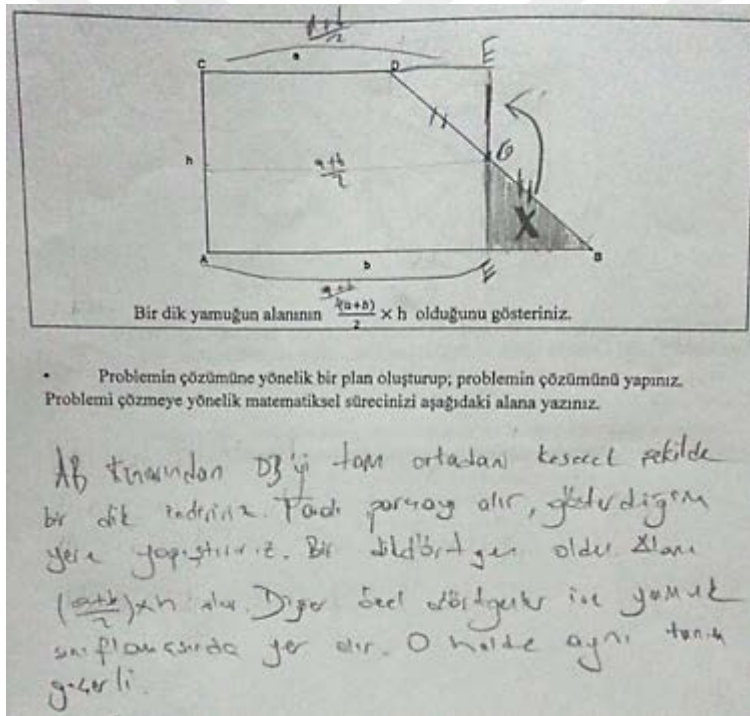 a+b/2
a
C
D
E
h
a+b/2
G
X
A
b
E
B
a+b/2
Bir dik yamuğun alanının (a+b)/2 × h olduğunu gösteriniz.
• Problemin çözümüne yönelik bir plan oluşturup; problemin çözümünü yapınız.
Problemi çözmeye yönelik matematiksel sürecinizi aşağıdaki alana yazınız.
AB kenarından DB'yi tam ortadan kesecek şekilde
bir dik indiririz. parçayı alır, gösterdiğim
yere yapıştırırız. Bir dikdörtgen oldu. Alanı
(a+b/2)xh olur. Diğer özel dörtgenler ise yamuk
sınıflamasında yer alır. O halde aynı
geçerli.